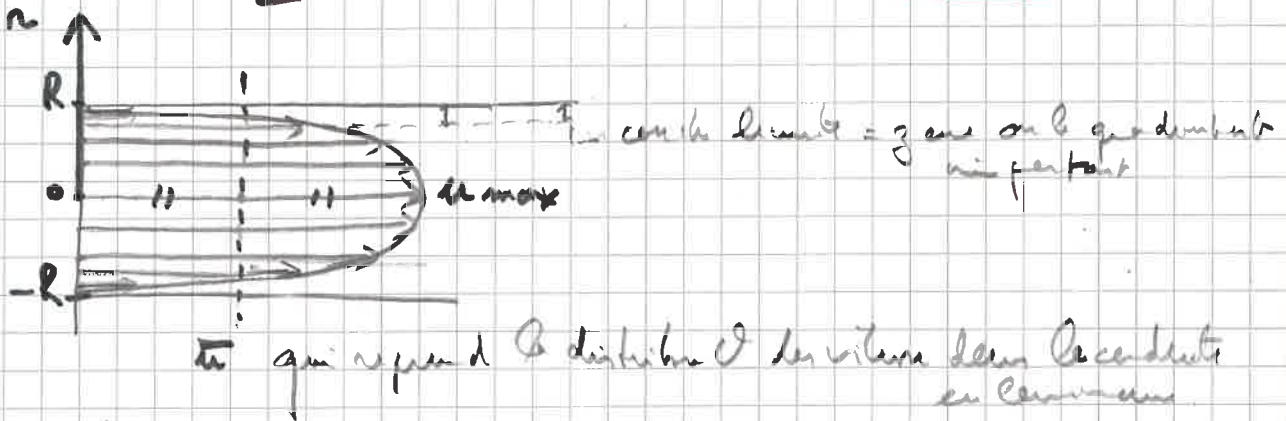 r
R
couche limite = zone où le gradient est
important
0
u max
-R
ū qui reprend la distribu° des vitesses dans la conduite
en laminaire